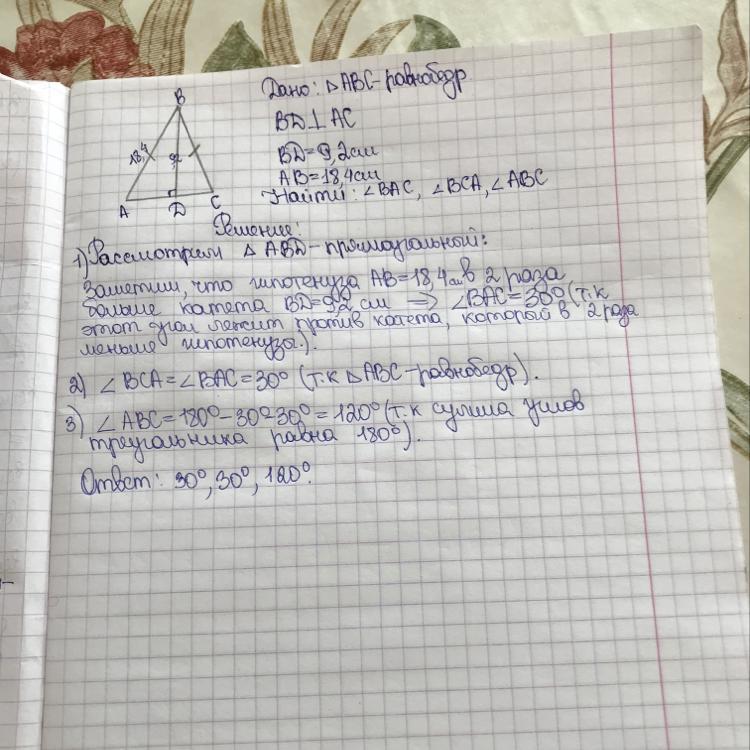 Дано: △ABC-равнобедр
BD⊥AC
BD=9,2см
AB=18,4см
Найти: ∠BAC, ∠BCA, ∠ABC
B
18,4
A
D
C
Решение:
1) Рассмотрим △ABD-прямоугольный:
Заметим, что гипотенуза AB=18,4см в 2 раза
больше катета BD=9,2см ⇒ ∠BAC=30° (т.к
этот угол лежит против катета, который в 2 раза
меньше гипотенузы.).
2) ∠BCA=∠BAC=30° (т.к △ABC-равнобедр).
3) ∠ABC=180°-30°-30°=120° (т.к сумма углов
треугольника равна 180°).
Ответ: 30°, 30°, 120°.